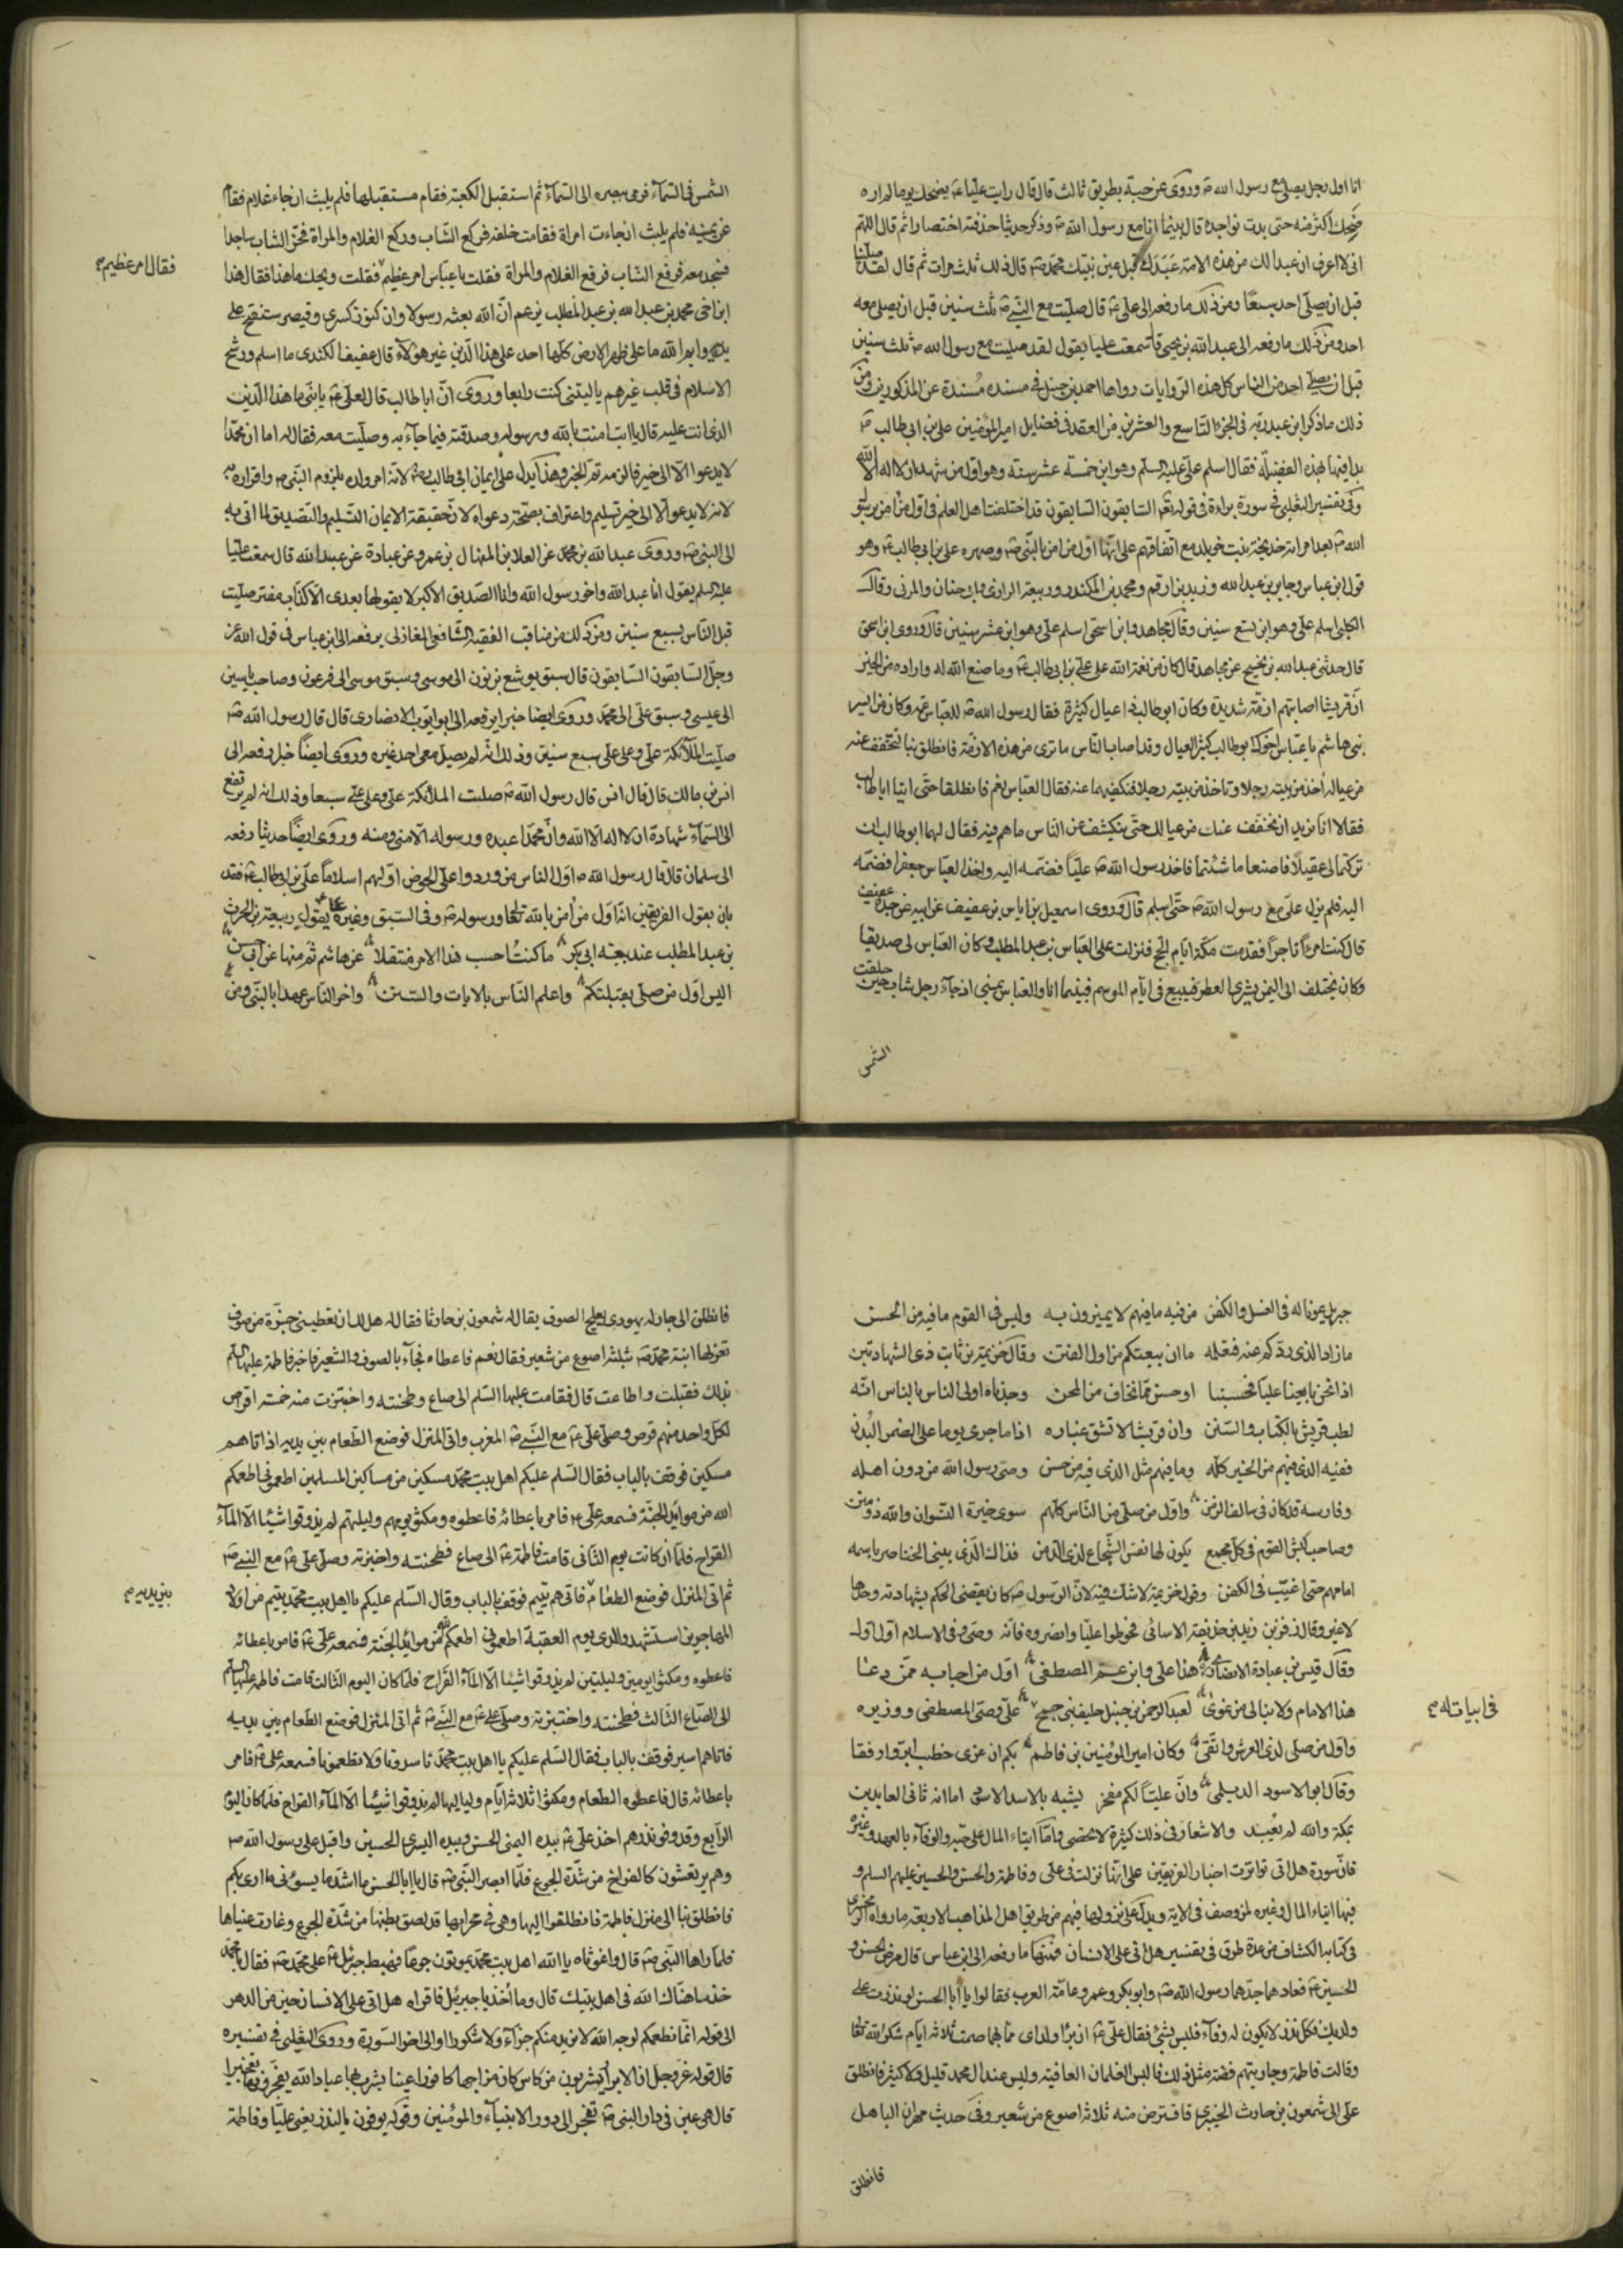 انا اول رجل يصلى مع رسول الله ص وروى عن حبة بطريق ثالث قال قال رايت عليا ع يضحك يوما لم اره
ضحك اكثر منه حتى بدت نواجده قال بينما انا مع رسول الله ص وذكر حديثا حذفته اختصارا ثم قال اللهم
انى لا اعرف ان عبدا لك من هذه الامة عبدك قبلى عين نبيك محمد ص قال ذلك ثلث مرات ثم قال لقد صليت
قبل ان يصلى احد سبعا ومن ذلك ما رفعه الى على ع قال صليت مع النبى ص ثلث سنين قبل ان يصلى معه
احد ومن ذلك ما رفعه الى عبد الله بن يحيى قال سمعت عليا يقول لقد صليت مع رسول الله ص ثلث سنين
قبل ان يصلى احد من الناس كل هذه الروايات رواها احمد بن حنبل فى مسنده مسندة عن المذكورين ومن
ذلك ما ذكر ابن عبد ربه فى الجزء التاسع والعشرين من العقد فى فضايل امير المؤمنين على بن ابى طالب ع
بدا فيها بهذه الفضيلة فقال اسلم على عليه السلم وهو ابن خمسة عشر سنة وهو اول من شهد ان لا اله الا الله
وفى تفسير الثعلبى فى سورة براءة فى قوله تعالى السابقون السابقون قد اختلفت اهل العلم فى اول من امن برسول
الله ص بعد امراته خديجة بنت خويلد مع اتفاقهم على انها اول من امن بالنبى ص وصهره على بن ابى طالب ع وهو
قول ابن عباس وجابر بن عبد الله وزيد بن ارقم ومحمد بن المكندر وربيعة الراى وابى حنان والمزنى وقال
الكلبى اسلم على وهو ابن تسع سنين وقال مجاهد وابن اسحق اسلم على وهو ابن عشر سنين قال وروى ابن اسحق
قال حدثنى عبد الله بن نجيح عن مجاهد قال كان من نعمة الله على على بن ابى طالب ع وما صنع الله له واراده من الخير
ان قريشا اصابتهم ازمة شديدة وكان ابو طالب ذا عيال كثيرة فقال رسول الله ص للعباس عمه وكان من ايسر
بنى هاشم يا عباس اخوك ابو طالب كثير العيال وقد اصاب الناس ما ترى من هذه الازمة فانطلق بنا نخفف عنه
من عياله اخذ من بيته رجلا وتاخذ من بيته رجلا فنكفيهما عنه فقال العباس نعم فانطلقا حتى اتيا ابا طالب
فقالا انا نريد ان نخفف عنك من عيالك حتى ينكشف عن الناس ما هم فيه فقال لهما ابو طالب ان
تركتما لى عقيلا فاصنعا ما شئتما فاخذ رسول الله ص عليا فضمه اليه واخذ العباس جعفرا فضمه
اليه فلم يزل على مع رسول الله ص حتى اسلم قال وروى اسمعيل بن اياس بن عفيف عن ابيه عن جده عفيف
قال كنت امرءا تاجرا فقدمت مكة ايام الحج فنزلت على العباس بن عبد المطلب وكان العباس لى صديقا
وكان يختلف الى اليمن يشرى العطر فيبيع فى ايام الموسم فبينما انا والعباس بمنى اذ جاء رجل شاب حين حلقت
الشمس
الشمس فى السماء فرمى ببصره الى السماء ثم استقبل الكعبة فقام مستقبلها فلم يلبث ان جاء غلام فقام
عن يمينه فلم يلبث ان جاءت امراة فقامت خلفه فركع الشاب وركع الغلام والمراة فخر الشاب ساجدا
فسجد معه فرفع الشاب فرفع الغلام والمراة فقلت يا عباس امر عظيم فقلت ويحك ما هذا فقال هذا
فقال امر عظيم
ابن اخى محمد بن عبد الله بن عبد المطلب يزعم ان الله بعثه رسولا وان كنوز كسرى وقيصر ستفتح على
يديه وايم الله ما على ظهر الارض كلها احد على هذا الدين غير هؤلاء قال عفيف الكندى ما اسلم ورسخ
الاسلام فى قلب غيرهم يا ليتنى كنت رابعا وروى ان ابا طالب قال لعلى ع يا بنى ما هذا الدين
الذى انت عليه قال يا ابت امنت بالله ورسوله وصدقته فيما جاء به وصليت معه فقال له اما ان محمدا
لا يدعوا الا الى خير فالزمه تم الخبر وهذا يدل على ايمان ابى طالب رض لانه امر ولده بلزوم النبى ص واقراره
لانه لا يدعو الا الى خير تسليم واعتراف بصحة دعواه لان حقيقة الايمان التسليم والتصديق لما اتى به
الى النبى ص وروى عبد الله بن محمد عن العلا بن المنهال بن عمرو عن عبادة عن عبد الله قال سمعت عليا
عليه السلم يقول انا عبد الله واخو رسول الله وانا الصديق الاكبر لا يقولها بعدى الا كذاب مفتر صليت
قبل الناس بسبع سنين ومن ذلك من مناقب الفقيه الشافعى المغازلى يرفعه الى ابن عباس فى قول الله عز
وجل السابقون السابقون قال سبق يوشع بن نون الى موسى وسبق موسى الى فرعون وصاحب ياسين
الى عيسى وسبق على الى محمد وروى ايضا خبرا يرفعه الى ابو ايوب الانصارى قال قال رسول الله ص
صليت الملائكة على وعلى على سبع سنين وذلك انه لم يصل معى احد غيره وروى ايضا خبرا رفعه الى
انس بن مالك قال قال انس قال رسول الله ص صليت الملائكة على وعلى على سبعا وذلك انه لم ترتفع
الى السماء شهادة ان لا اله الا الله وان محمدا عبده ورسوله الا منى ومنه وروى ايضا حديثا رفعه
الى سلمان قال قال رسول الله ص اول الناس من ورودا على الحوض اولهم اسلاما على بن ابى طالب ع فقد
بان بقول الفريقين انه اول من امن بالله تعالى ورسوله ص وفى السبق وغيره يقول ربيعة بن الحرث
بن عبد المطلب عند بيعته ابى بكر ما كنت احسب هذا الامر منتقلا عن هاشم ثم منها عن ابى حسن
اليس اول من صلى بقبلتكم واعلم الناس بالايات والسنن واخر الناس عهدا بالنبى ومن
جبريل عونا له فى الغسل والكفن من فيه ما فيهم لا يميزون به وليس فى القوم ما فيه من الحسن
ماذا الذى ردكم عنه فنعلمه ها ان بيعتكم من اول الفتن وقال خزيمة بن ثابت ذى الشهادتين
اذا نحن بايعنا عليا فحسبنا ابو حسن مما نخاف من المحن وجدناه اولى الناس بالناس انه
لطب قريش بالكتاب والسنن وان قريشا لا تشق غباره اذا ما جرى يوما على الضمر البدن
ففيه الذى فيهم من الخير كله وما فيهم مثل الذى فيه من حسن وصى رسول الله من دون اهله
وفارسه قد كان فى سالف الزمن واول من صلى من الناس كلهم سوى خيرة النسوان والله ذو منن
وصاحب كبش القوم فى كل مجمع يكون لها نفس الشجاع لدى الذقن فذاك الذى يثنى الخناصر باسمه
امامهم حتى اغيب فى الكفن وقول خزيمة لا شك فيه لان الرسول ص كان يقضى الحكم بشهادته وحدها
لا غير وقال زفر بن زيد بن حذيفة الاسدى فحوطوا عليا وانصروه فانه وصى وفى الاسلام اول اول
وقال قيس بن عبادة الانصارى هذا على وابن عم المصطفى اول من اجابه ممن دعا
هذا الامام ولا نبالى من غوى لعبد الرحمن بن حنبل حليف بنى جمح على وصى المصطفى ووزيره
فى ابيات له
واول من صلى لذى العرش واتقى وكان امير المؤمنين بن فاطم بكم ان عرى خطب ابر وارفقا
وقال ابو الاسود الديلمى وان عليا لكم مفخر يشبه بالاسد الاسود اما انه ثانى العابدين
بمكة والله لم يعبد والاشعار فى ذلك كثيرة لا تحصى واما ايتاء المال على حبه والوفاء بالعهد وغيره
فان سورة هل اتى تواترت اخبار الفريقين على انها نزلت فى على وفاطمة والحسن والحسين عليهم السلم و
فيها ايتاء المال وغيره لمن وصف فى الاية ويدل على نزولها فيهم من طريق اهل المذاهب الاربعة ما رواه الزمخشرى
فى كتابه الكشاف من عدة طرق فى تفسير هل اتى على الانسان فمنها ما رفعه الى ابن عباس قال مرض الحسن و
الحسين ع فعادهما جدهما رسول الله ص وابو بكر وعمر وعامة العرب فقالوا يا ابا الحسن لو نذرت على
ولديك فكل نذر لا يكون له وفاء فليس بشئ فقال على ع ان برا ولداى مما بهما صمت ثلاثة ايام شكرا لله تعالى
وقالت فاطمة وجاريتهم فضة مثل ذلك فالبس الغلمان العافية وليس عند ال محمد قليل ولا كثير فانطلق
على الى شمعون بن حارث الخيبرى فاقترض منه ثلاثة اصوع من شعير وفى حديث مهران الباهلى
فانطلق
فانطلق الى جار له يهودى يعالج الصوف يقال له شمعون بن حارثا فقال له هل لك ان تعطينى جزة من صوف
تغزلها ابنة محمد ص بثلثة اصوع من شعير فقال نعم فاعطاه فجاء بالصوف والشعير فاخبر فاطمة عليها السلم
بذلك فقبلت واطاعت قال فقامت عليها السلم الى صاع وطحنته واختبزت منه خمسة اقراص
لكل واحد منهم قرص وصلى على ع مع النبى ص المغرب واتى المنزل فوضع الطعام بين يديه اذ اتاهم
مسكين فوقف بالباب فقال السلم عليكم اهل بيت محمد مسكين من مساكين المسلمين اطعمونى اطعمكم
الله من موايد الجنة فسمعه على ع فامر باعطائه فاعطوه ومكثوا يومهم وليلتهم لم يذوقوا شيئا الا الماء
القراح فلما ان كانت يوم الثانى قامت فاطمة ع الى صاع فطحنته واختبزته وصلى على ع مع النبى ص
ثم اتى المنزل فوضع الطعام فاتاهم يتيم فوقف بالباب وقال السلم عليكم يا اهل بيت محمد يتيم من اولاد
بين يديه
المهاجرين استشهد والدى يوم العقبة اطعمونى اطعمكم الله من موايد الجنة فسمعه على ع فامر باعطائه
فاعطوه ومكثوا يومين وليلتين لم يذوقوا شيئا الا الماء القراح فلما كان اليوم الثالث قامت فاطمة عليها السلم
الى الصاع الثالث فطحنته واختبزته وصلى على ع مع النبى ص ثم اتى المنزل فوضع الطعام بين يديه
فاتاهم اسير فوقف بالباب فقال السلم عليكم يا اهل بيت محمد تاسرونا ولا تطعمونا فسمعه على ع فامر
باعطائه قال فاعطوه الطعام ومكثوا ثلاثة ايام ولياليها لم يذوقوا شيئا الا الماء القراح فلما كان اليوم
الرابع وقد وفوا نذرهم اخذ على ع بيده اليمنى الحسن وبيده اليسرى الحسين واقبل على رسول الله ص
وهم يرتعشون كالفراخ من شدة الجوع فلما ابصر النبى ص قال يا ابا الحسن ما اشد ما يسوئنى ما ارى بكم
فانطلق بنا الى منزل فاطمة فانطلقوا اليها وهى فى محرابها قد لصق بطنها من شدة الجوع وغارت عيناها
فلما راها النبى ص قال واغوثاه يا الله اهل بيت محمد يموتون جوعا فهبط جبرئيل ع على محمد ص فقال يا محمد
خذ ما هناك الله فى اهل بيتك قال وما اخذ يا جبرئيل فاقراه هل اتى على الانسان حين من الدهر
الى قوله انما نطعمكم لوجه الله لا نريد منكم جزاء ولا شكورا والى اخر السورة وروى الثعلبى فى تفسيره
قال قوله عز وجل ان الابرار يشربون من كاس كان مزاجها كافورا عينا يشرب بها عباد الله يفجرونها تفجيرا
قال هى عين فى دار النبى ص تفجر الى دور الانبياء والمؤمنين وقوله يوفون بالنذر يعنى عليا وفاطمة